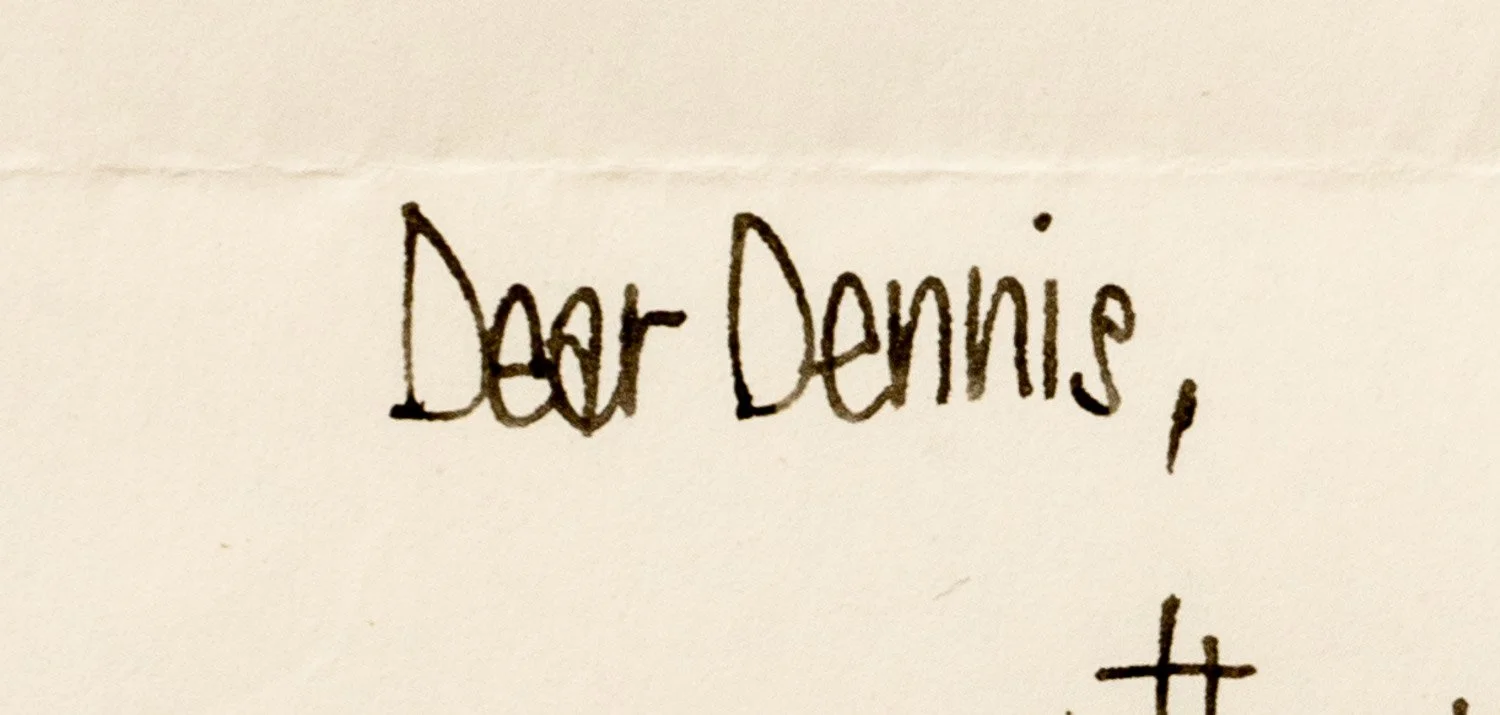 Dear Dennis,